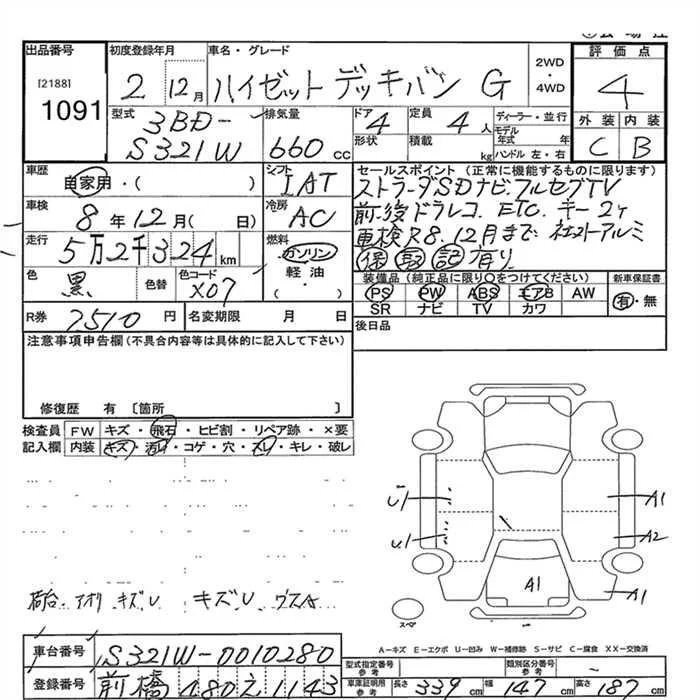 出品番号 初度登録年月 車名・グレード 2WD・4WD 評価点
[2188] 1091 2 12月 ハイゼット デッキバン G 4
型式 排気量 ドア 定員 ディーラー・並行 外装 内装
3BD- S321W 660cc 4 4人 モデル年式 年 C B
形状 積載 kg ハンドル 左・右
車歴 自家用・( ) シフト IAT セールスポイント (正常に機能するものに限ります)
車検 8年12月( 日) 冷房 AC
走行 5万2千324km 燃料 ガソリン 軽油・( )
色 黒 色替 色コード X07
フルセグTV
前後ドラレコ. ETC. キー2ケ
車検R8.12月まで 社外アルミ
保 記 有り
装備品 (純正品に限り○をつけてください) 新車保証書
PS PW ABS エアB AW 有・無
SR ナビ TV カワ
R券 7510円 名変期限 月 日 後日品
注意事項申告欄(不具合内容等は具体的に記入して下さい)
修復歴 有 [箇所 ]
検査員 FW キズ・飛石・ヒビ割・リペア跡・×要
記入欄 内装 キズ・汚レ・コゲ・穴・スレ・キレ・破レ
U1 A1
U1 A2
A1 A1
荷台 アオリ キズU キズU
スペア
A-キズ E-エクボ U-凹み W-補修跡 S-サビ C-腐食 XX-交換済
車台番号 S321W-0010280 型式指定番号 類別区分番号 -
登録番号 前橋 480 え 1143 車庫証明用参考 長さ 339cm 幅 147cm 高さ 187cm